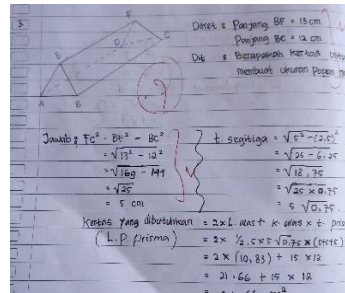 3.
F
E
D
A
B
Diket : Panjang BF = 13 cm
Panjang BC = 12 cm
Dit : Berapakah kertas
membuat ukuran Papan
Jawab : FC² = BF² - BC²
= √13² - 12²
= √169 - 144
= √25
= 5 cm
t. segitiga = √5² - (2,5)²
= √25 - 6,25
= √18,75
= √25 × 0,75
= 5 √0,75
Kertas yang dibutuhkan = 2 × L. alas + k. alas × t. pris
(L.P. prisma) = 2 × ½ .5 × 5 √0,75 × (5+5+5)
= 2 × (10,83) + 15 × 12
= 21,66 + 15 × 12